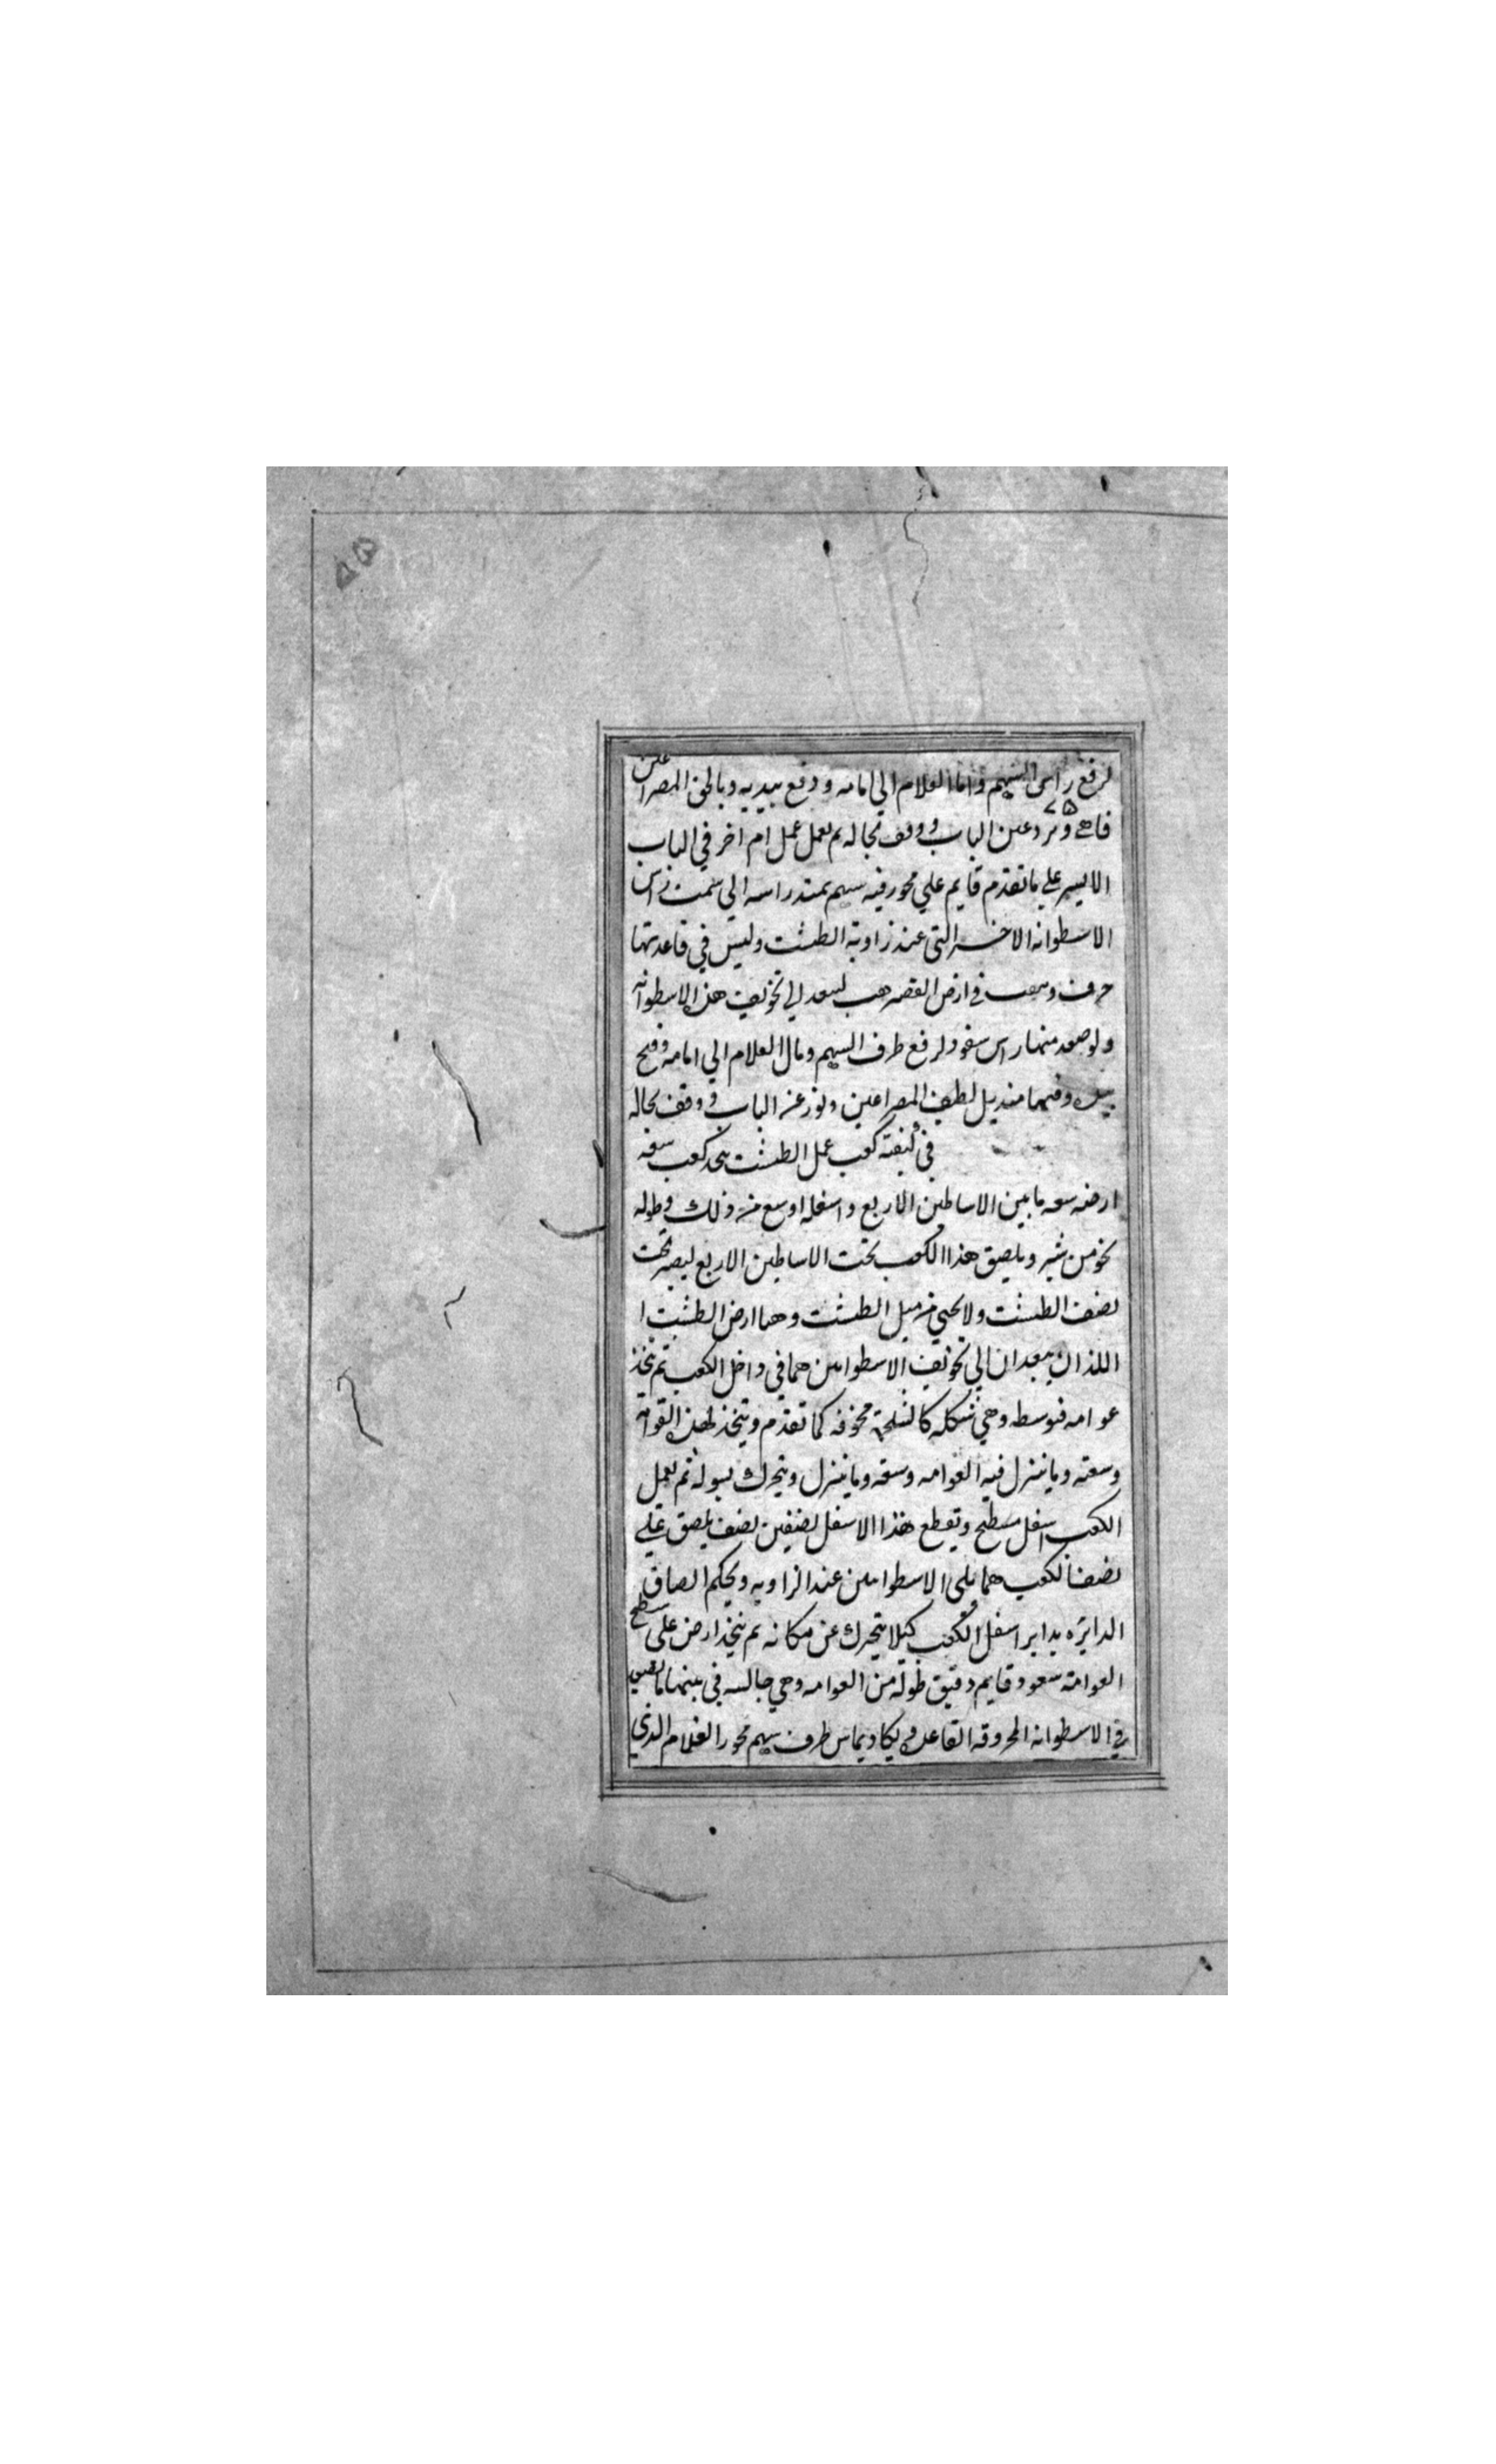 ۵۵
لرفع راس السهم واما الغلام الي امامه ودفع بيديه وبالحق المصراعين
فانفتح وبرد عن الباب ووقف بحاله ثم يعمل عمل ام اخر في الباب
الايسر علي ما تقدم قايم علي محور فيه سهم يمتد راسه الي سمت راس
الاسطوانه الاخر التي عند زاوية الطشت وليس في قاعدتها
خرق في ارض القصر هذه الاسطوانه
ولو صعد منها راس سفود لرفع طرف السهم ومال الغلام الي امامه وفتح
وفيهما منديل لطيف المصراعين عن الباب ووقف بحاله
في كيفية كعب عمل الطشت يتخذ كعب سعة
ارضه سعه ما بين الاساطين الاربع واسفله اوسع من ذلك وطوله
نحو من شبر ويلصق هذا الكعب تحت الاساطين الاربع ليصير تحت
نصف الطشت ولا من ميل الطشت ارض الطشت ا
اللذان الي تجويف الاسطوانتين هما في داخل الكعب ثم يتخذ
عوامه وهي شكله كالشلجمة مجوفه كما تقدم ويتخذ لهذه العوامة
وسعته وما ينزل فيه العوامه وسعه وما ينزل ويتحرك بسوله ثم يعمل
الكعب اسفل مسطح وتقطع هذا الاسفل نصفين نصف يلصق علي
نصف الكعب مما يلي الاسطوانتين عند الزاويه ويحكم الصاق
الدايره بداير اسفل الكعب كيلا يتحرك عن مكانه ثم يتخذ ارض علي سطح
العوامة سفود قايم دقيق طوله من العوامه وهي جالسه في بيتها
في الاسطوانه المخروقه القاعده ويكاد يماس طرف سهم محور الغلام الذي